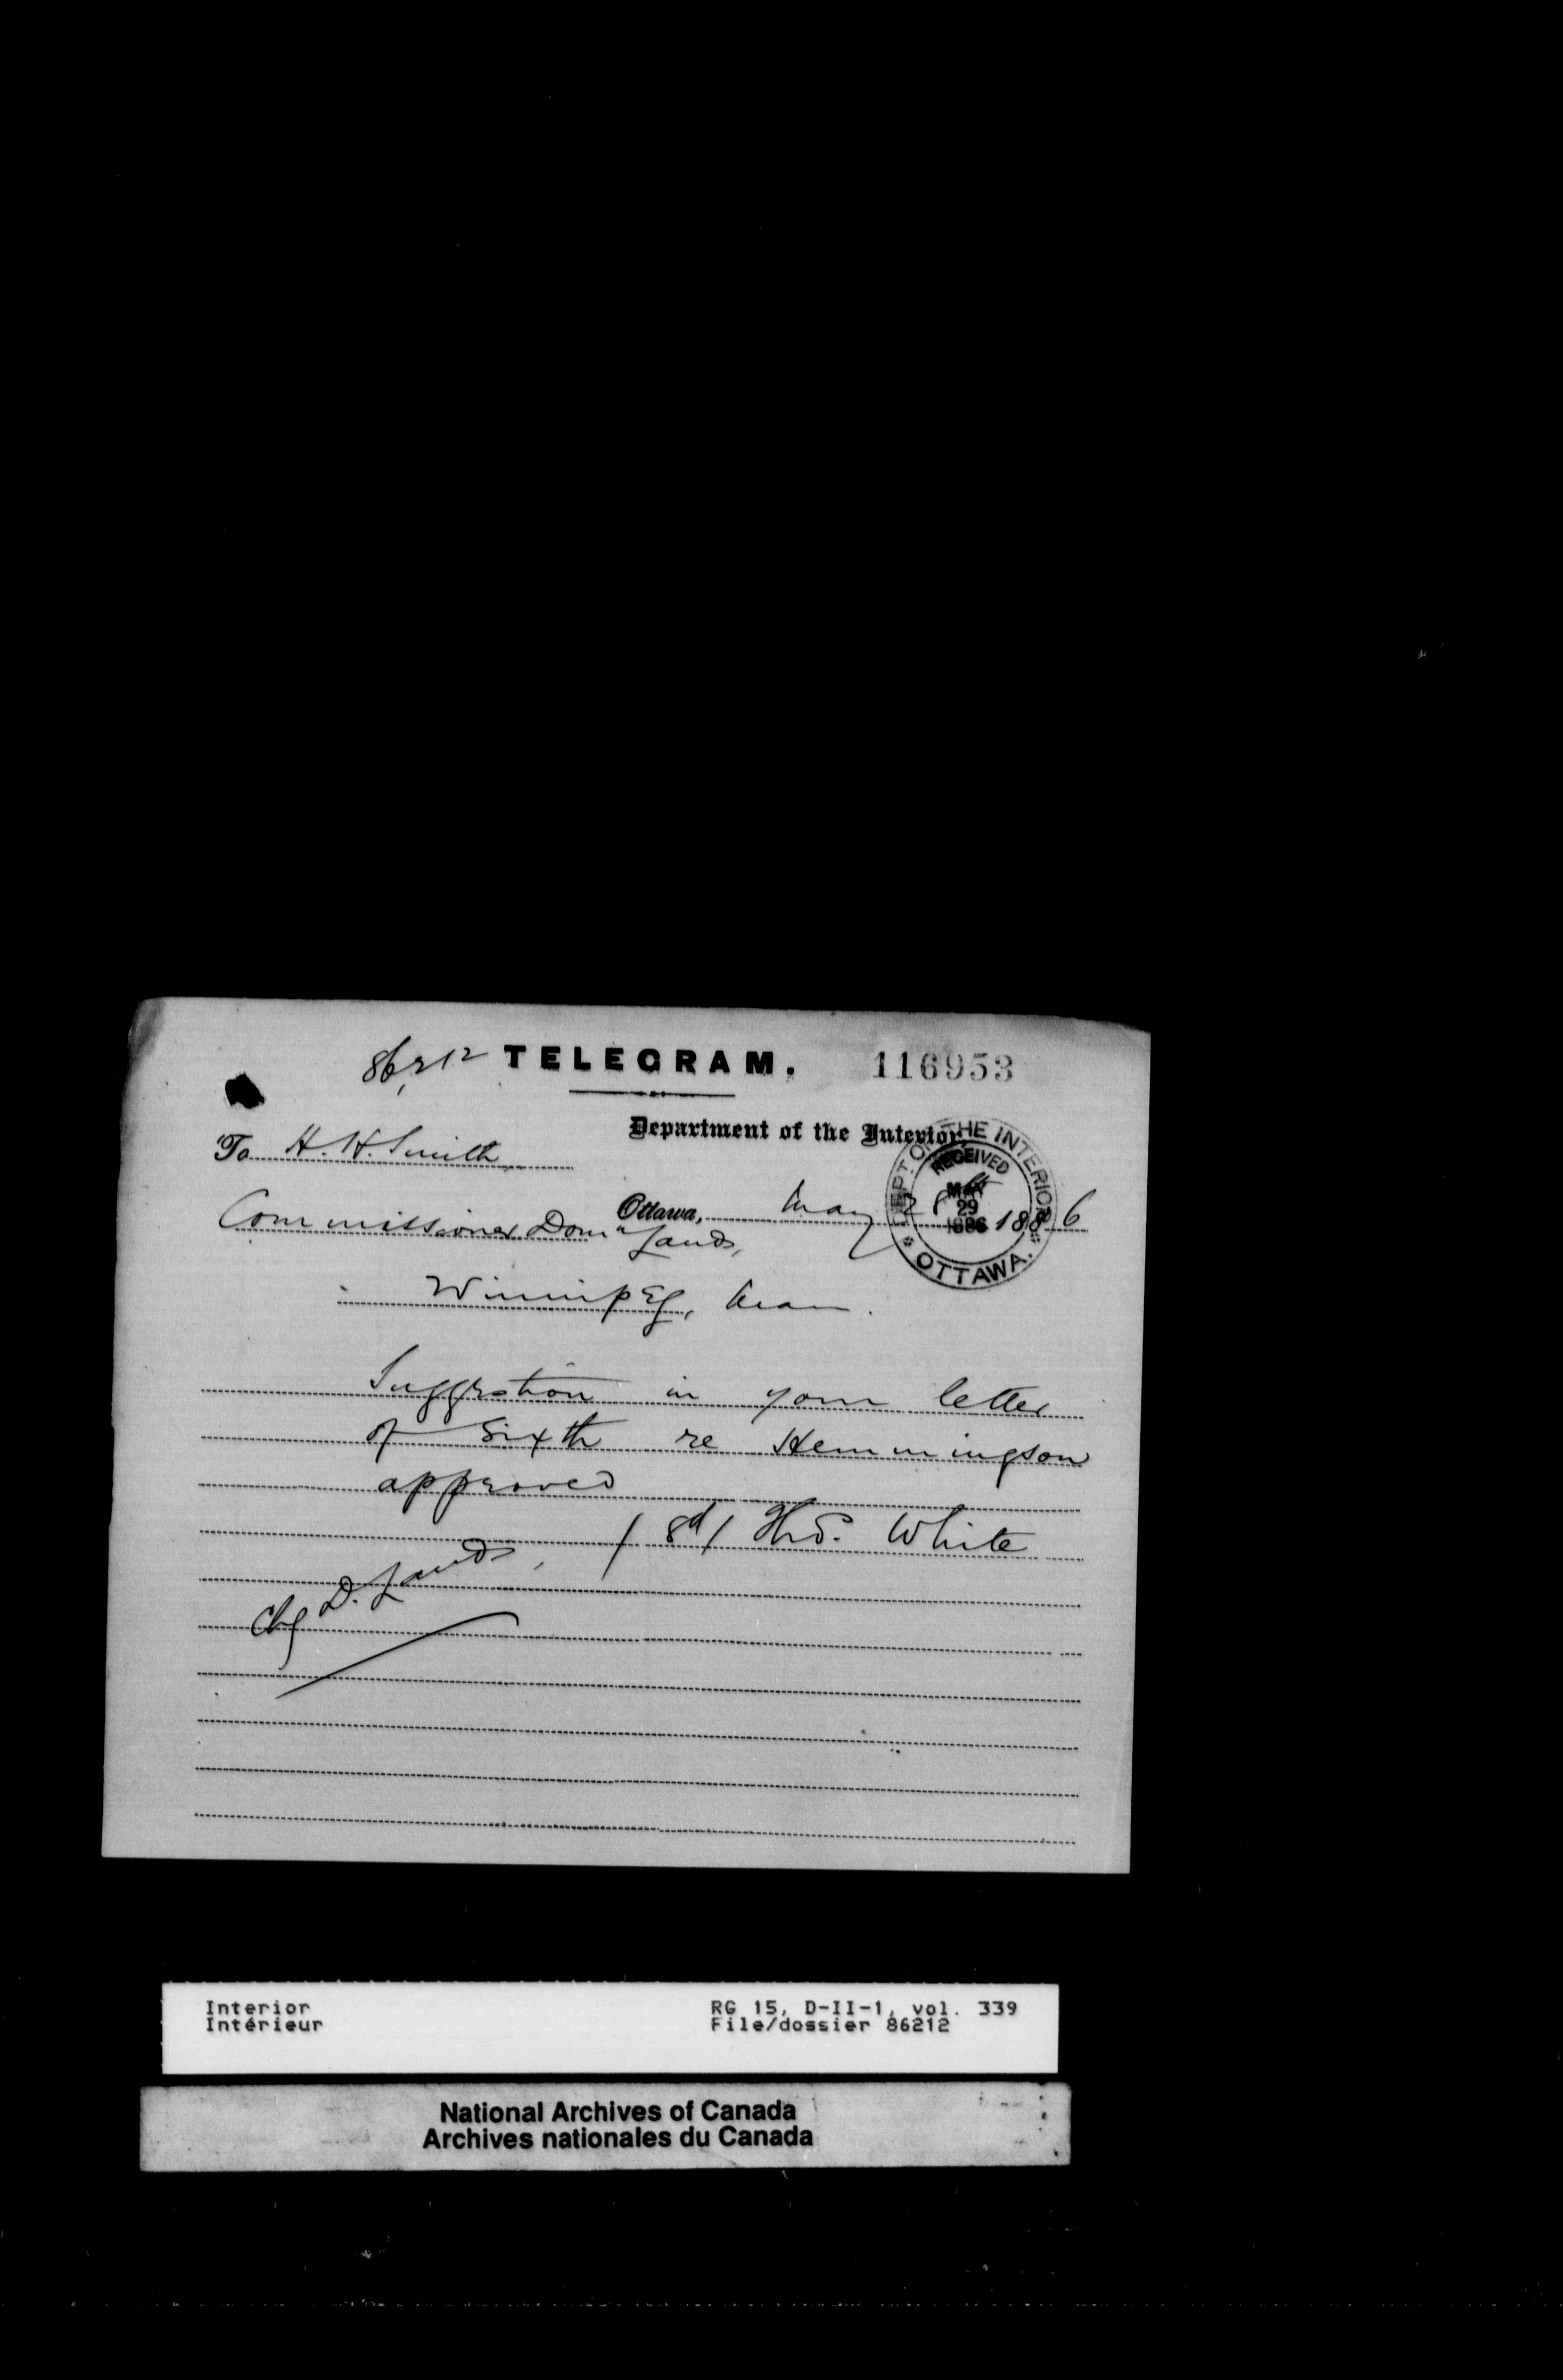 86,212 TELEGRAM. 116953
Department of the Interior,
To H. H. Smith
DEPT. OF THE INTERIOR
RECEIVED
MAY
29
1886
OTTAWA.
Ottawa, May 1886
Commissioner Domn Lands,
Winnipeg, Man.
Suggestion in your letter
of Sixth re Hemmingson
approved
(Sd) Thos. White
Chg D. Lands,
Interior RG 15, D-II-1, vol. 339
Intérieur File/dossier 86212
National Archives of Canada
Archives nationales du Canada